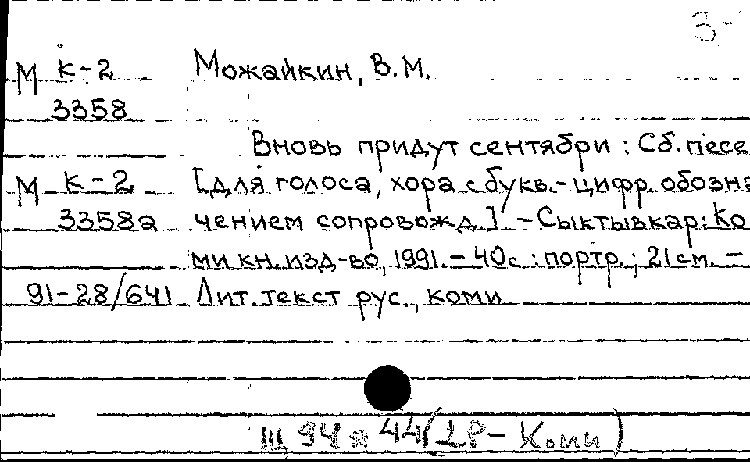 3-
М К-2 Можайкин, В.М.
3358
Вновь придут сентябри : Сб. песе
М К-2 [для голоса, хора с букв.-цифр. обозна
3358а чением сопровожд.] - Сыктывкар: Ко
ми кн. изд-во, 1991. - 40с : портр. ; 21 см. -
91-28/641 Лит. текст рус., коми
Щ 94я 44(2Р-Коми)